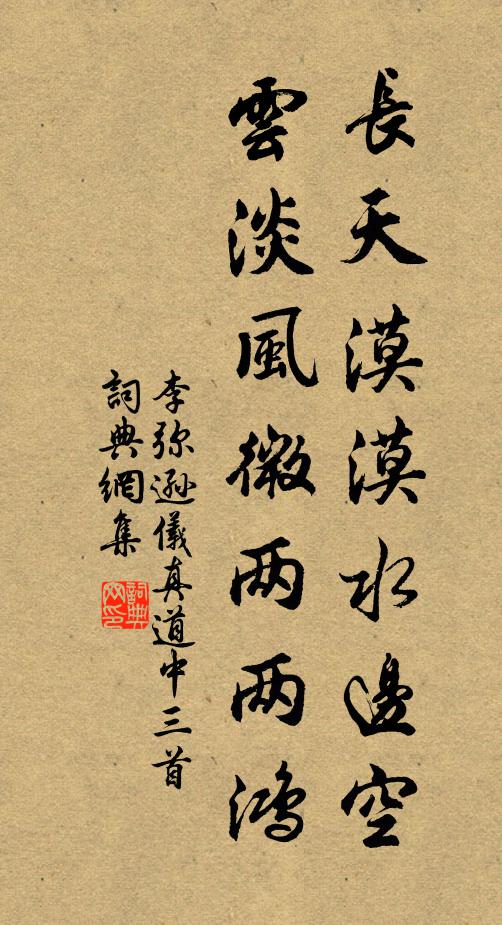 長天漠漠水邊空
雲淡風微两两鴻
李弥遜儀真道中三首
詞典網集
詞典网印